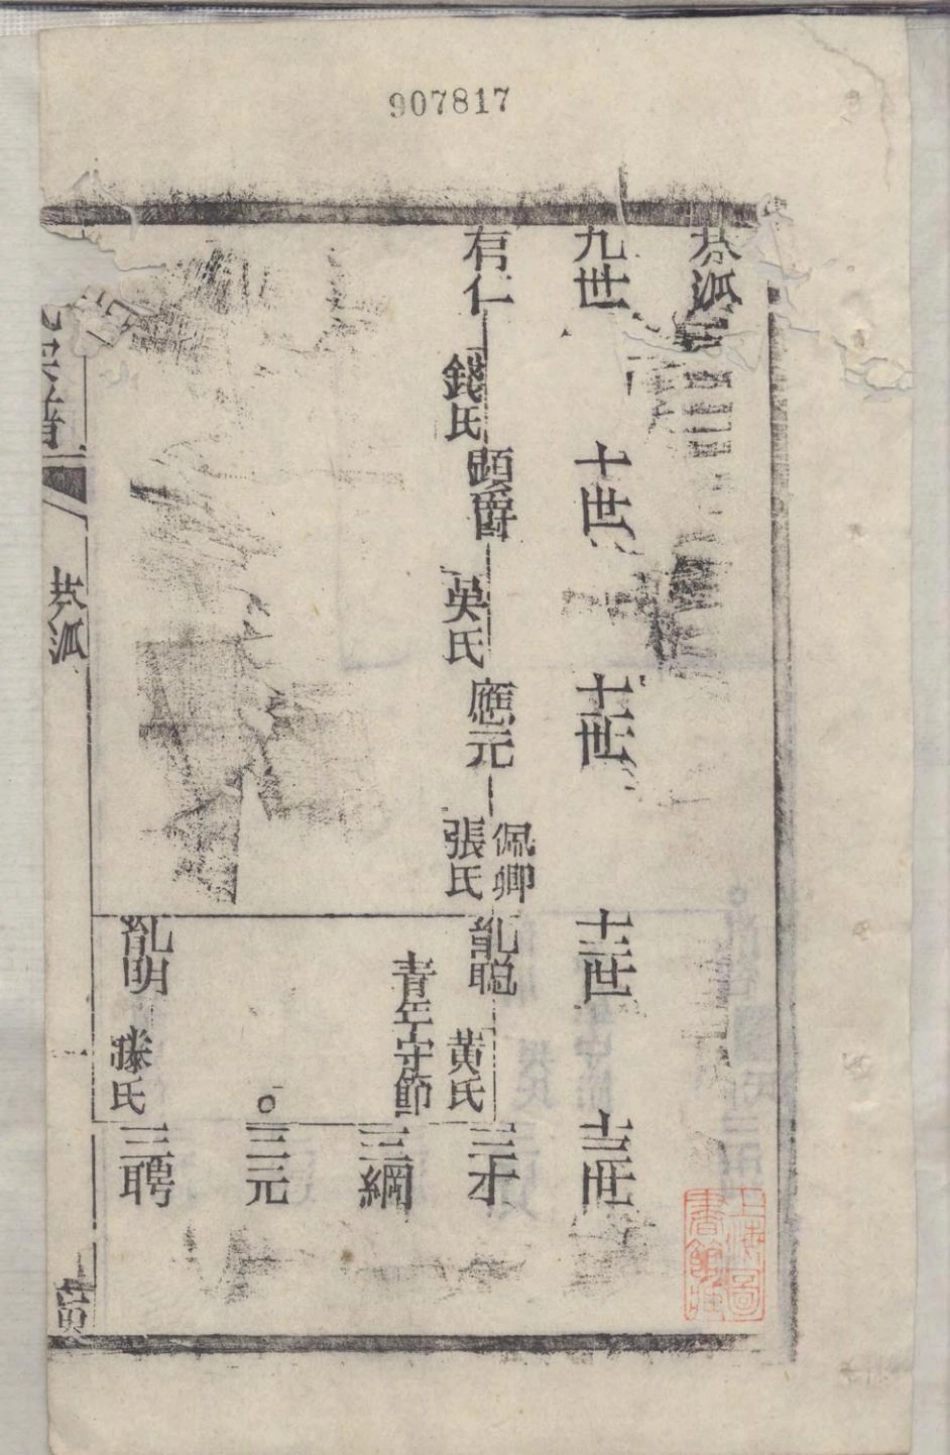 907817
九世
十世
十一世
十二世
十三世
君仁
錢氏
顯爵
吳氏
應元
佩卿
張氏
胤聰
黃氏
青年守節
三才
三綱
三元
胤明
滕氏
三聘
上海圖
書館藏